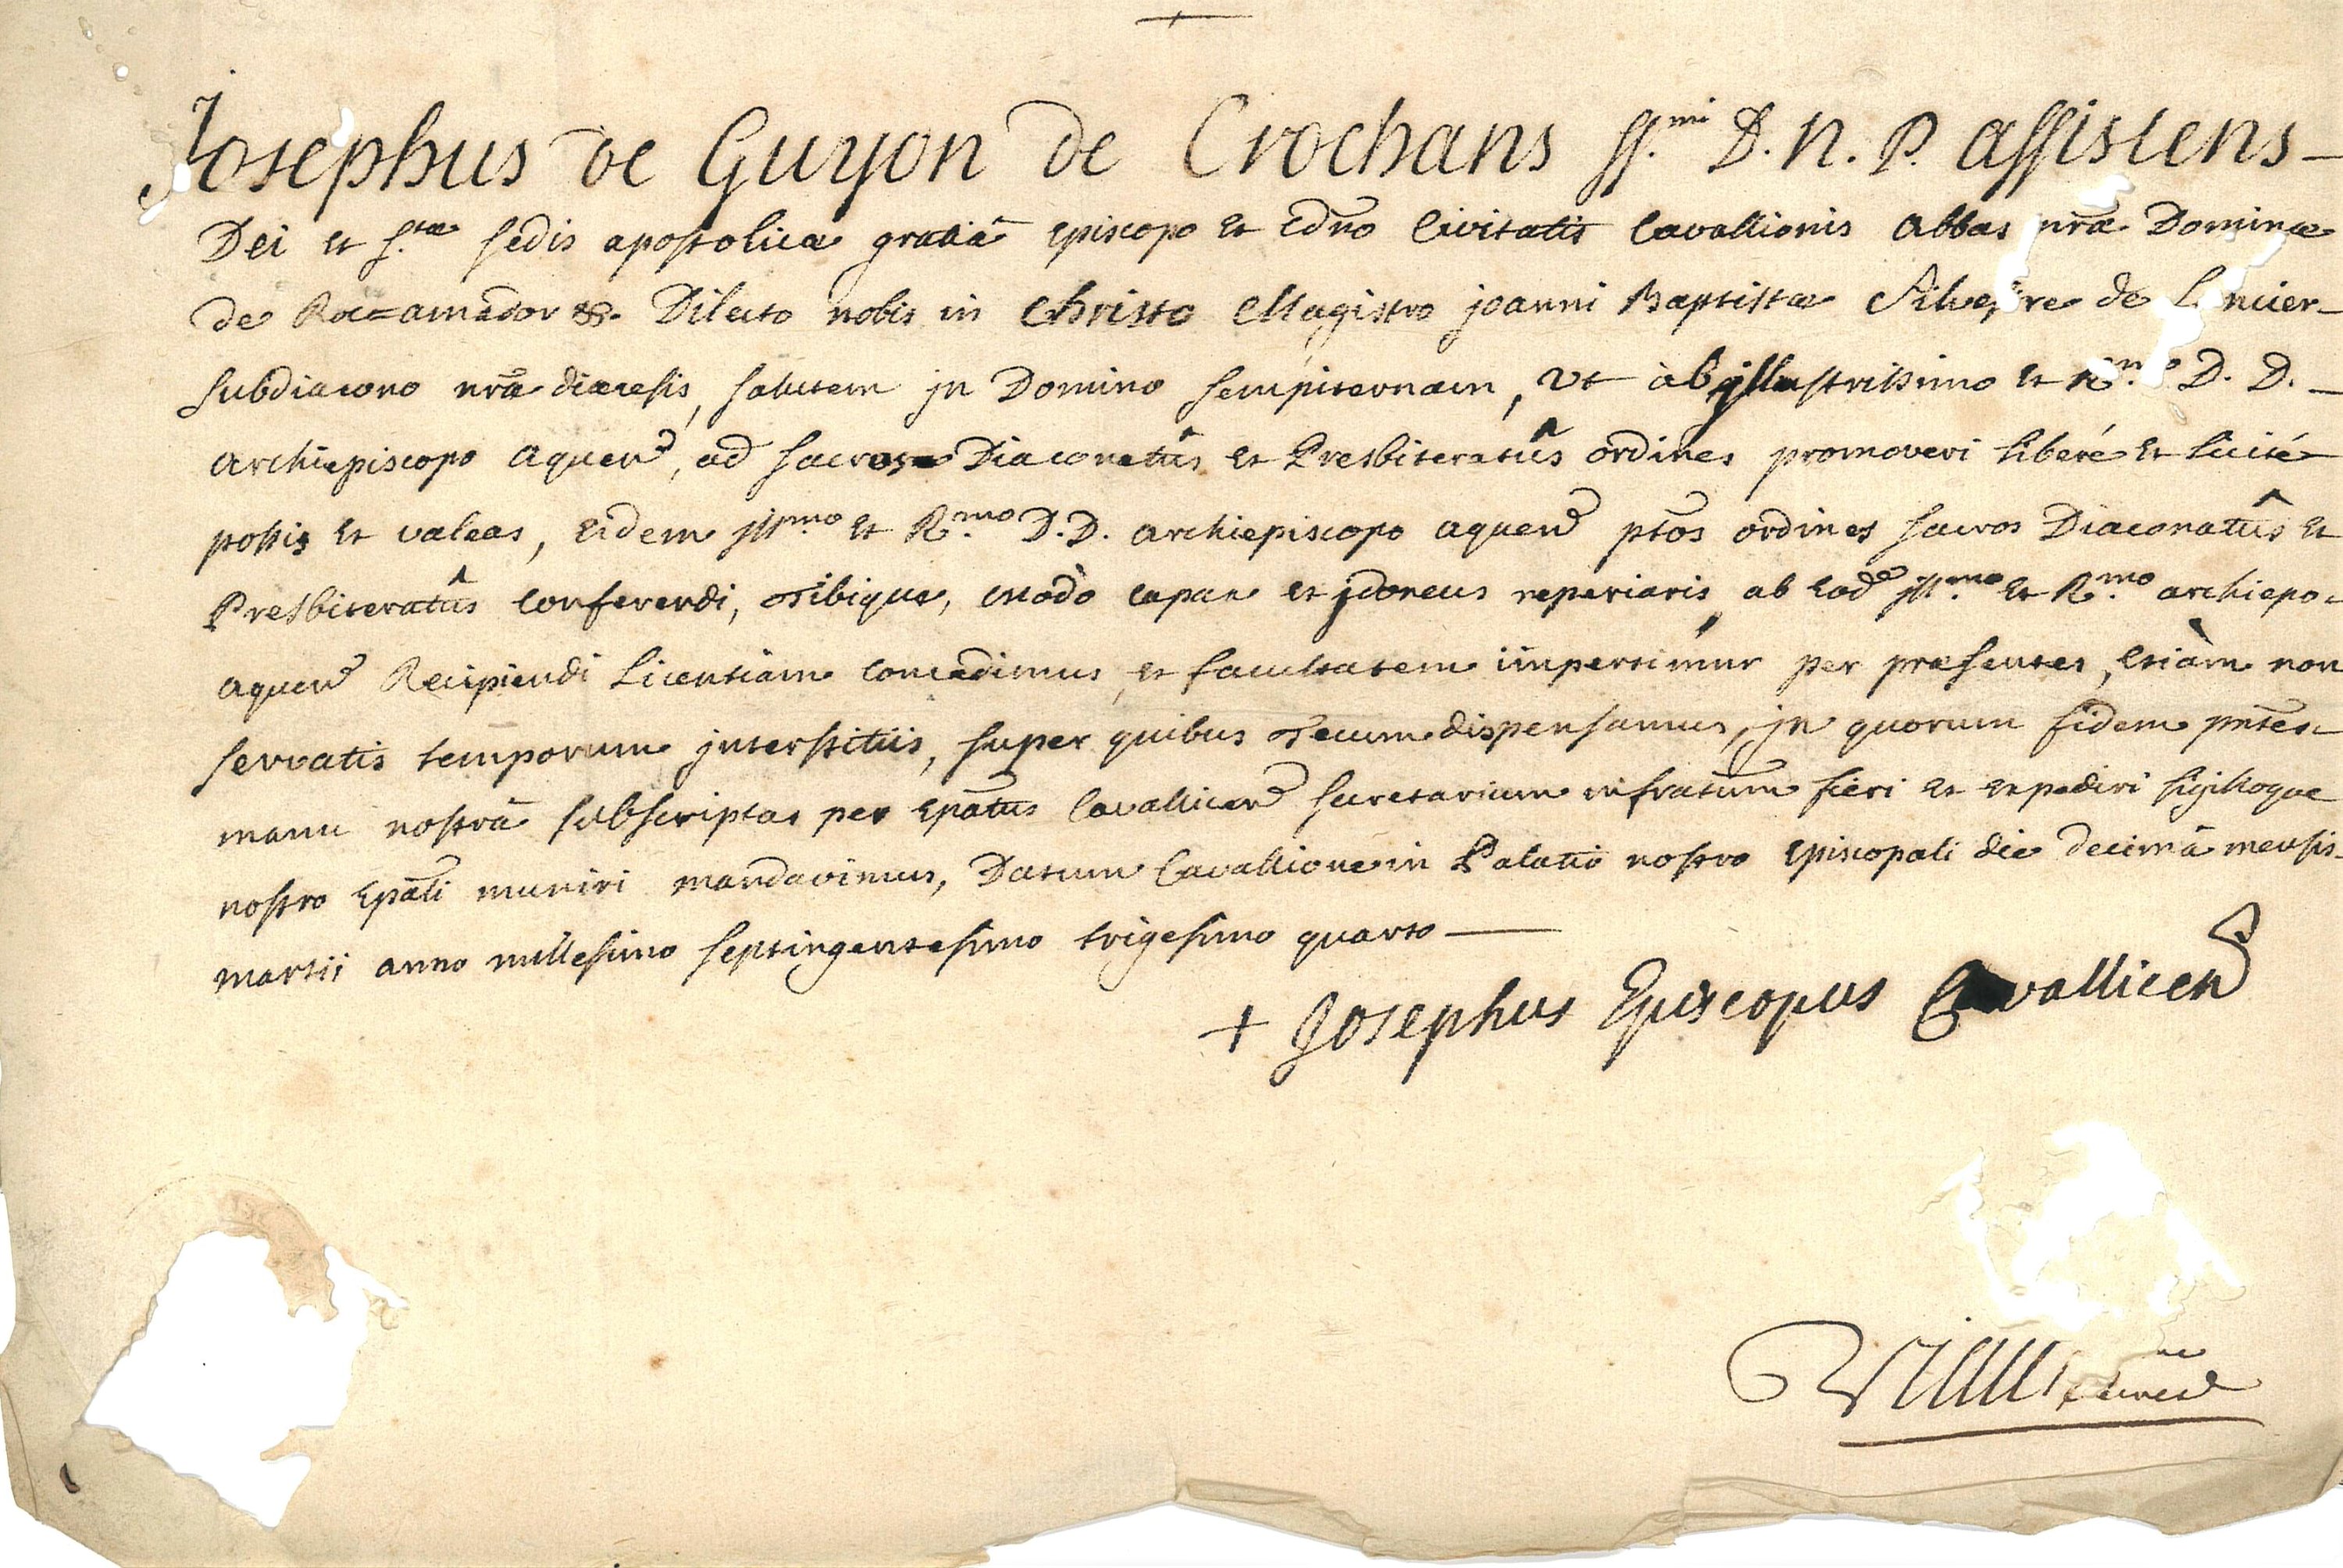 Josephus de Guyon de Crochans ss.mi D. N. P. assistens
Dei et s.tæ sedis apostolicæ gratiâ episcopo et edño civitatis Cavallionis Abbas nr̃æ Dominæ
de Roc=amador &. Dilecto nobis in Christo Magistro joanni Baptistæ Silvestre de
subdiacono nr̃æ diæcesis, salutem jn Domino sempiternam, vt ab jllustrissimo et R.mo D. D.
archiepiscopo aquen̄, ad sacros Diaconatûs et Presbiteratûs ordines promoveri liberé et licité
possis et valeas, eidem jll.mo et R.mo D.D. archiepiscopo aquen̄ ptos ordines sacros Diaconatûs et
Presbiteratûs conferendi, tibique, modò capax et jdoneus reperiaris, ab eod̄ jll.mo et R.mo archiepo.
aquen̄ Recipiendi Licentiam concedimus, et facultatem impertimur per præsentes, etiàm non
servatis temporum jnterstitiis, super quibus tecum dispensamus, jn quorum fidem pñtes
manu nostrâ subscriptas per epātus Cavallicen̄ secretarium infratum̄ fieri et expediri sigilloque
nostro epāli muniri mandavimus, Datum Cavallione in Palatio nostro episcopali die decimâ mensis
martii anno millesimo septingentesimo trigesimo quarto
+ Josephus Episcopus Cavallicen̄